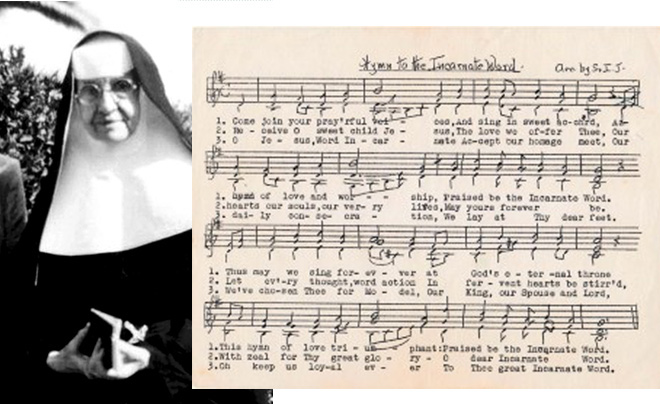 Hymn to the Incarnate Word. Arr. by S.I.J.
1. Come join your pray'rful voi - ces,And sing in sweet ac-cord, An-
2. Re - ceive O sweet child Je - sus,The love we of-fer Thee, Our
3. O Je - sus,Word In - car - nate Ac-cept our homage meet, Our
1. hymn of love and wor - ship, Praised be the Incarnate Word.
2.hearts our souls,our ver- ry lives,May yours forever be.
3. dai- ly con- se- cra - tion, We lay at Thy dear feet.
1. Thus may we sing for- ev - ver at God's e - ter -nal throne
2. Let ev'-ry thought,word action In fer - vent hearts be stirr'd,
3. We've cho-sen Thee for Mo - del, Our King, our Spouse and Lord,
1.This hymn of love tri - um - phant:Praised be the Incarnate Word.
2.With zeal for Thy great glo - ry - O dear Incarnate Word.
3.Oh keep us loy-al ev - er To Thee great Incarnate Word.